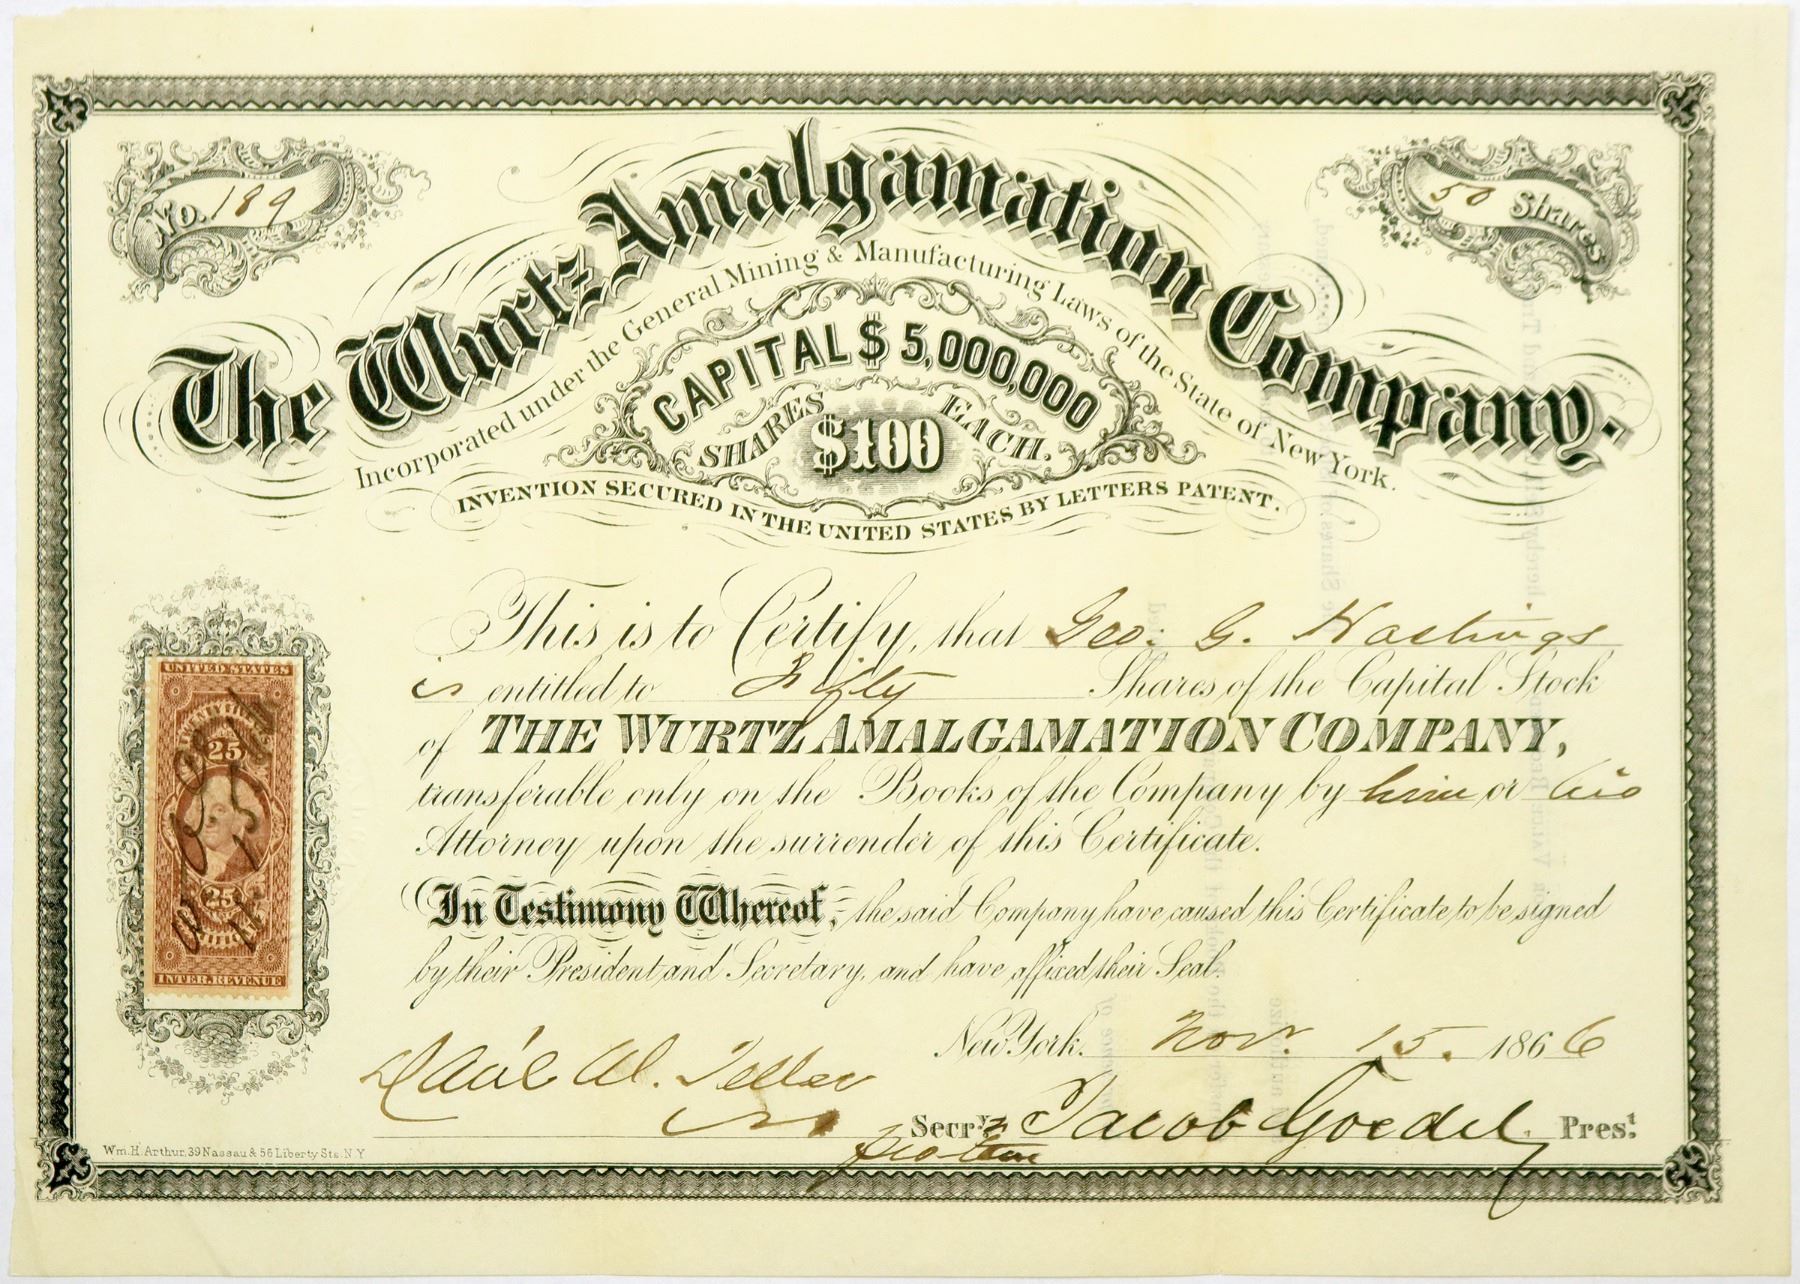 No. 189
50 Shares
The Wurtz Amalgamation Company.
Incorporated under the General Mining & Manufacturing Laws of the State of New York.
CAPITAL $5,000,000
SHARES $100 EACH.
INVENTION SECURED IN THE UNITED STATES BY LETTERS PATENT.
This is to Certify, that Geo: G. Hastings
is entitled to Fifty Shares of the Capital Stock
of THE WURTZ AMALGAMATION COMPANY,
transferable only on the Books of the Company by him or his
Attorney upon the surrender of this Certificate.
In Testimony Whereof, the said Company have caused this Certificate to be signed
by their President and Secretary, and have affixed their Seal.
New York. Nov. 15. 1866
Secry. pro tem Jacob Goedel Prest.
Wm. H. Arthur, 39 Nassau & 56 Liberty Sts. N Y
UNITED STATES
TWENTY FIVE
25
25
INTER. REVENUE